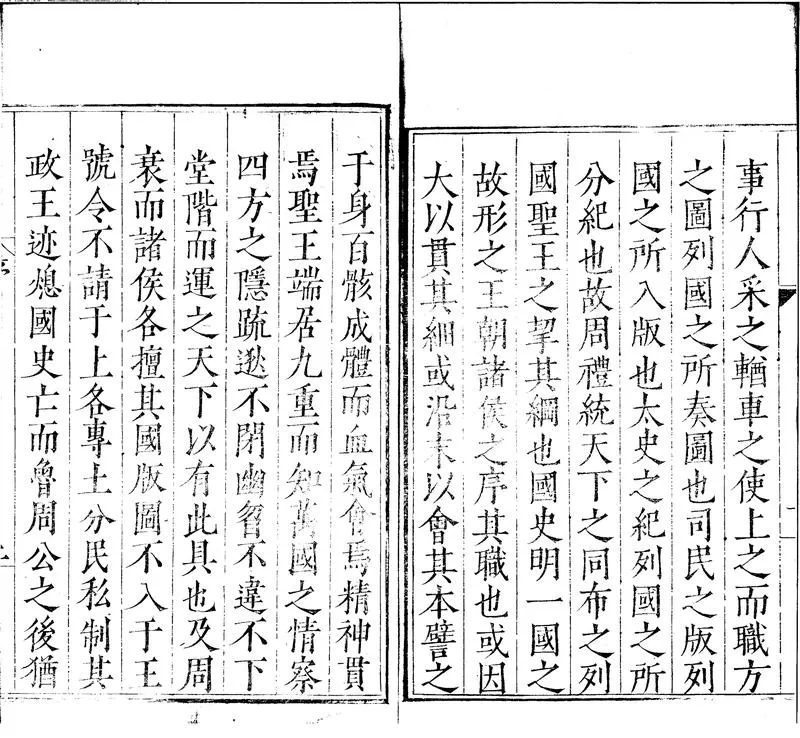 事行人采之輶車之使上之而職方
之圖列國之所奏圖也司民之版列
國之所入版也太史之紀列國之所
分紀也故周禮統天下之同布之列
國聖王之挈其綱也國史明一國之
故形之王朝諸侯之序其職也或因
大以貫其細或沿末以會其本譬之
于身百骸成體而血氣會焉精神貫
焉聖王端居九重而知萬國之情察
四方之隱疏逖不閉幽窅不違不下
堂階而運之天下以有此具也及周
衰而諸侯各擅其國版圖不入于王
號令不請于上各專土分民私制其
政王迹熄國史亡而魯周公之後猶
二